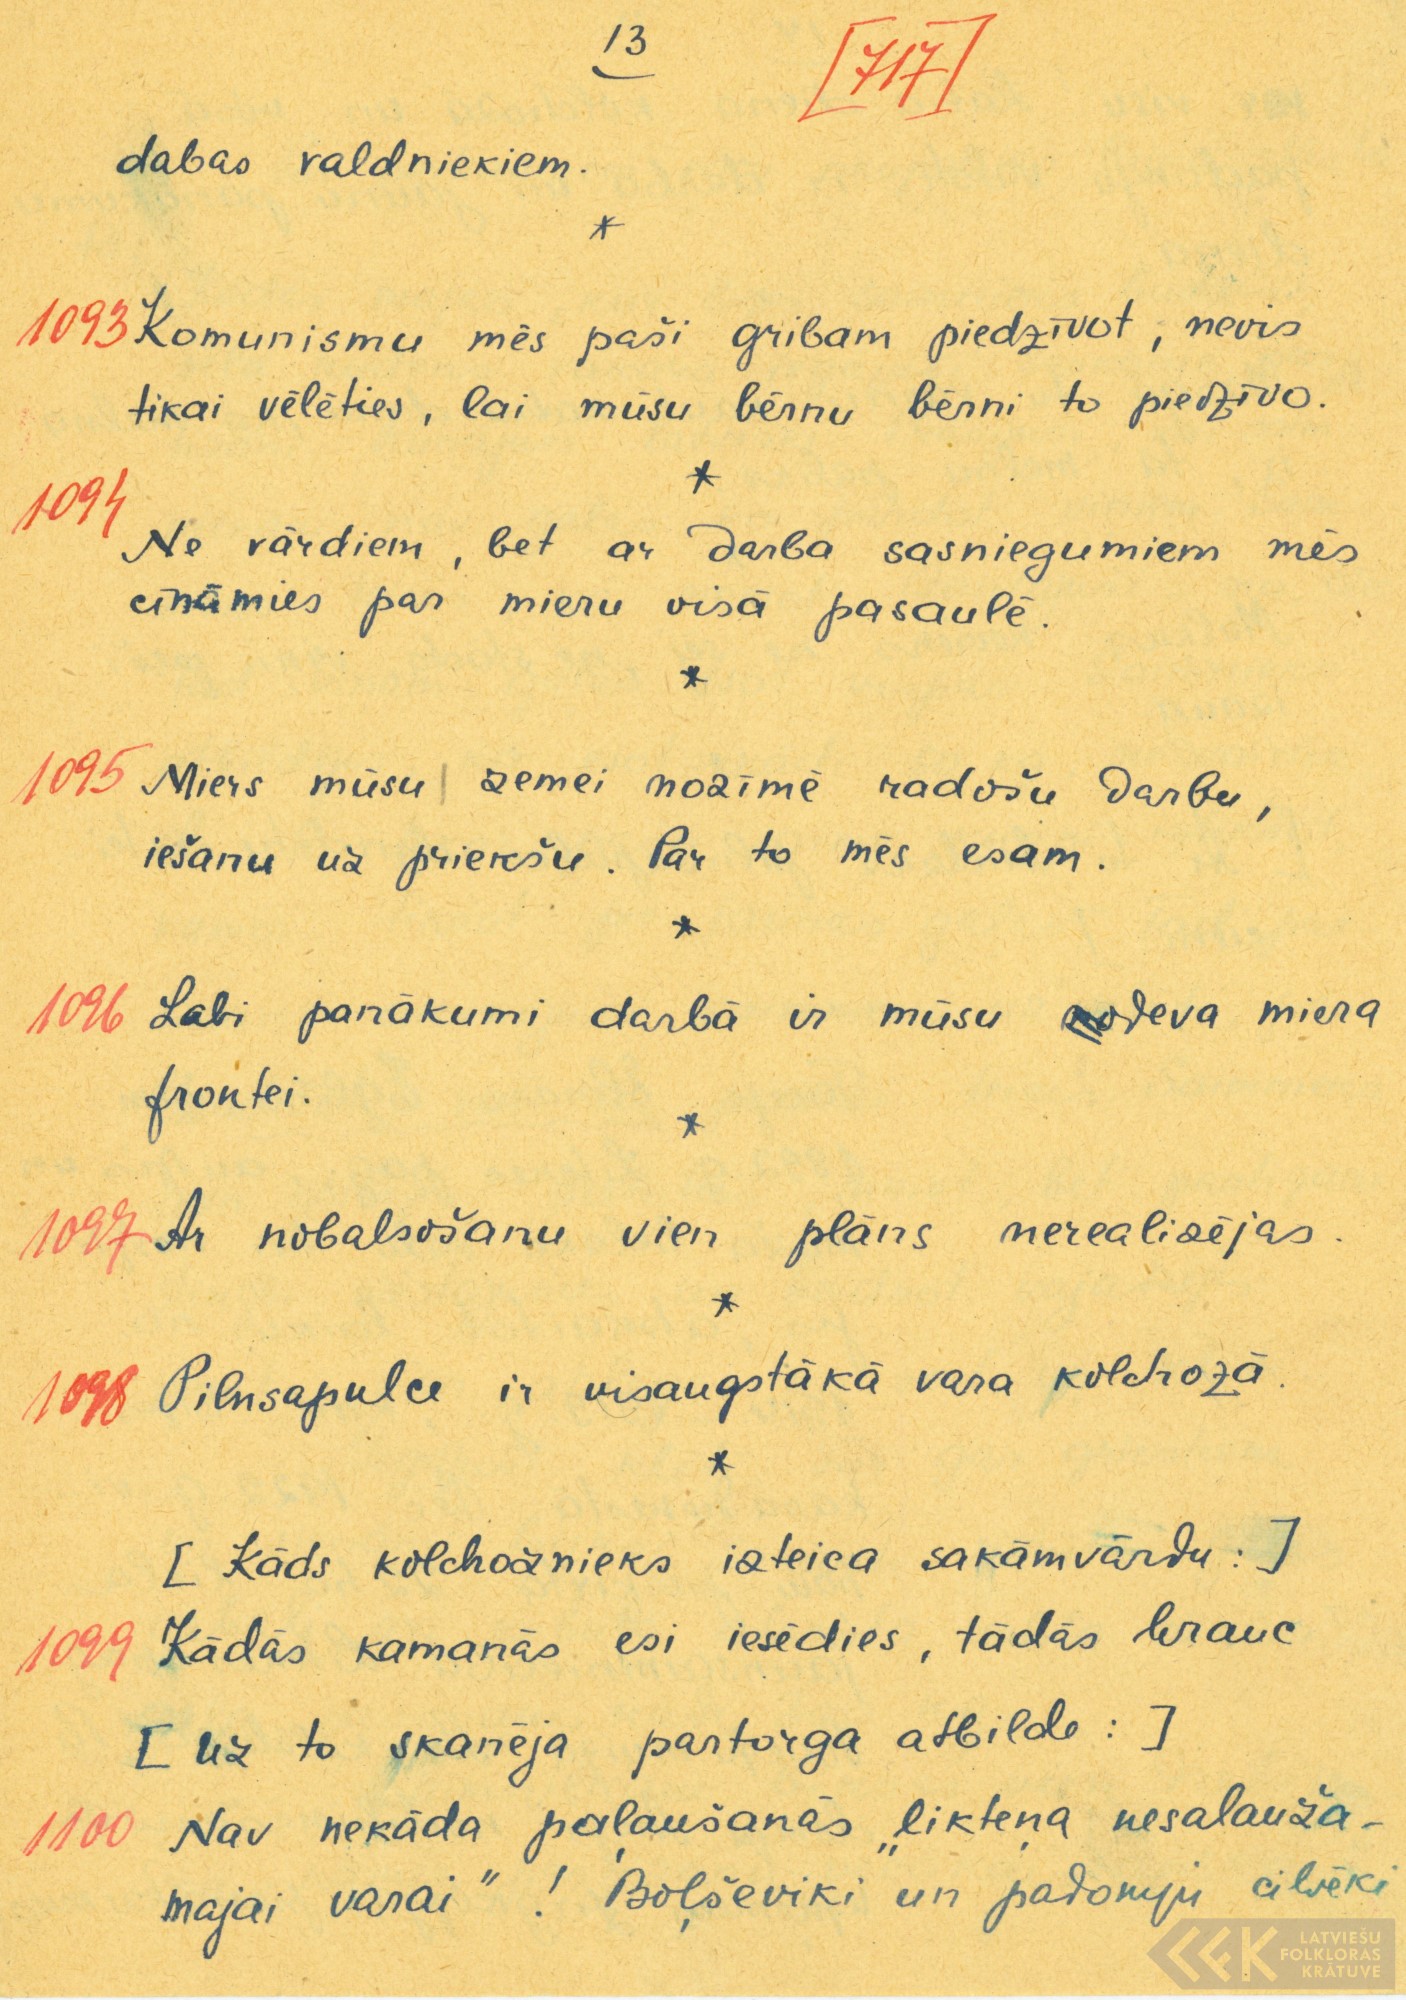 13
[717]
dabas valdniekiem.
*
1093 Komunismu mēs paši gribam piedzīvot, nevis
tikai vēlēties, lai mūsu bērnu bērni to piedzīvo.
*
1094
Ne vārdiem, bet ar darba sasniegumiem mēs
cīnāmies par mieru visā pasaulē.
*
1095 Miers mūsu zemei nozīmē radošu darbu,
iešanu uz priekšu. Par to mēs esam.
*
1096 Labi panākumi darbā ir mūsu nodeva miera
frontei.
*
1097 Ar nobalsošanu vien plāns nerealizējas.
*
1098 Pilnsapulce ir visaugstākā vara kolchozā.
*
[Kāds kolchoznieks izteica sakāmvārdu:]
1099 Kādās kamanās esi iesēdies, tādās brauc
[Uz to skanēja partorga atbilde:]
1100 Nav nekāda paļaušanās „likteņa nesalauža-
majai varai"! Boļševiki un padomju cilvēki
LATVIEŠU
FOLKLORAS
KRĀTUVE